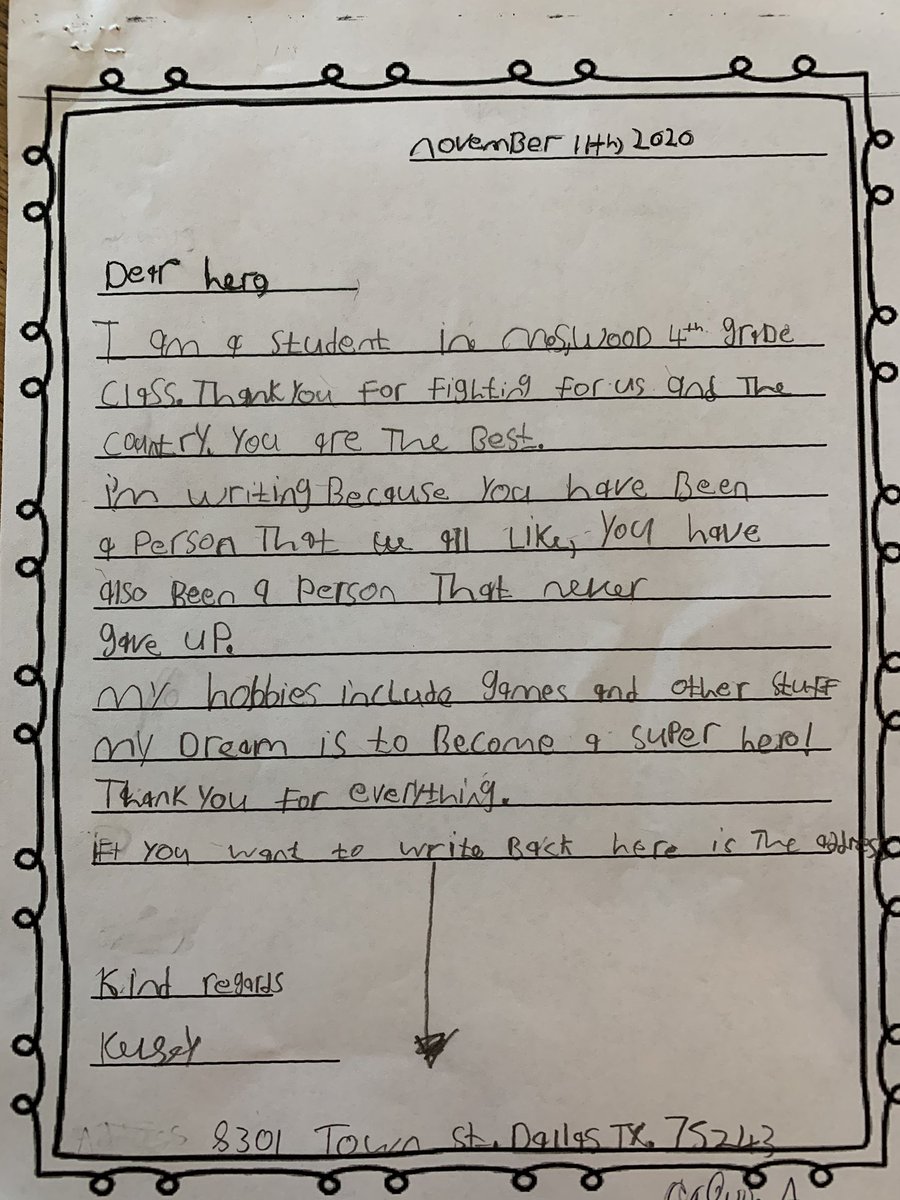 november 11th, 2020
Dear hero
I am a student in Ms, WOOD 4th grade
Class. Thank You For Fighting For us and The
Country. You are The Best.
i'm writing Because You have Been
a Person That we all Like, You have
also Been a Person That never
gave UP.
my hobbies include games and other stuff
my Dream is to Become a super hero!
Thank You For everything.
If You want to write Back here is The address
Kind regards
Address 8301 Town St. Dallas TX. 75243